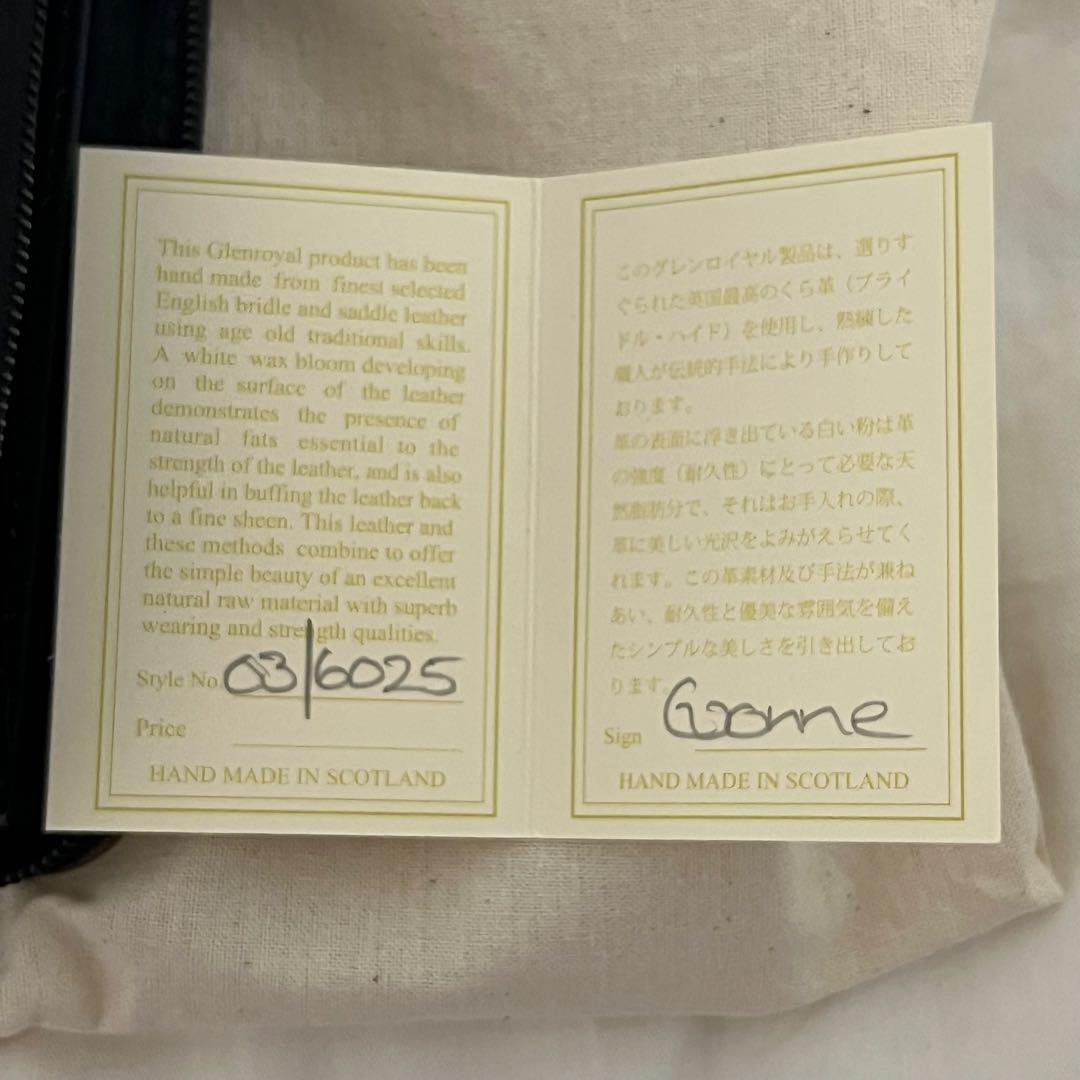 This Glenroyal product has been
hand made from finest selected
English bridle and saddle leather
using age old traditional skills.
A white wax bloom developing
on the surface of the leather
demonstrates the presence of
natural fats essential to the
strength of the leather, and is also
helpful in buffing the leather back
to a fine sheen. This leather and
these methods combine to offer
the simple beauty of an excellent
natural raw material with superb
wearing and strength qualities.
Style No 03/6025
Price
HAND MADE IN SCOTLAND
このグレンロイヤル製品は、選りす
ぐられた英国最高のくら革（ブライ
ドル・ハイド）を使用し、熟練した
職人が伝統的手法により手作りして
おります。
革の表面に浮き出ている白い粉は革
の強度（耐久性）にとって必要な天
然脂肪分で、それはお手入れの際、
革に美しい光沢をよみがえらせてく
れます。この革素材及び手法が兼ね
あい、耐久性と優美な雰囲気を備え
たシンプルな美しさを引き出してお
ります。
Sign
HAND MADE IN SCOTLAND